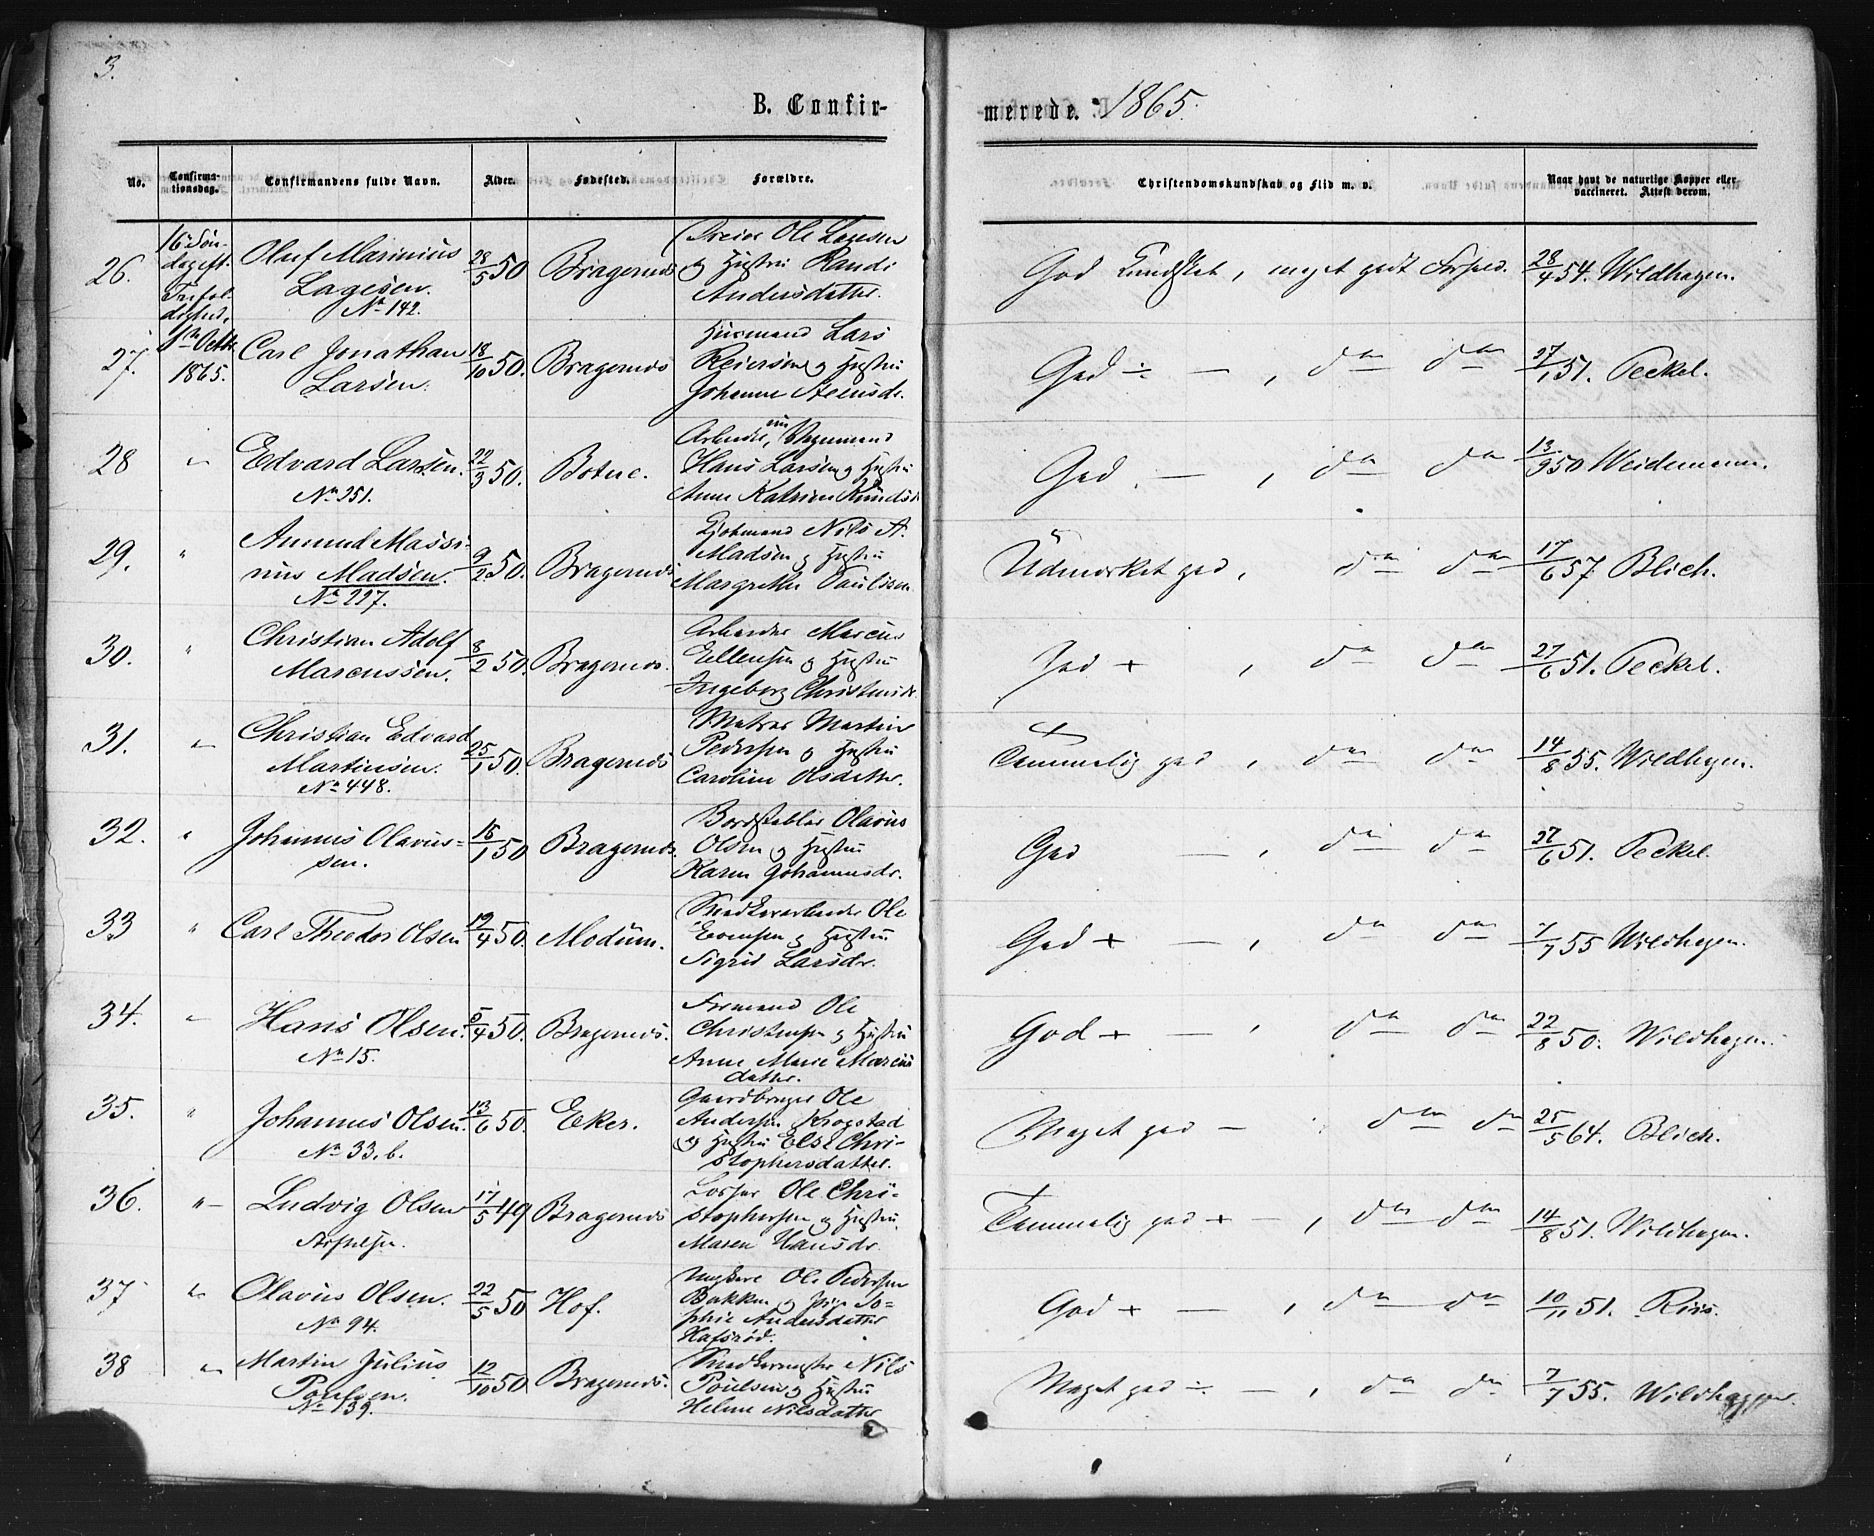 3.
B. Confirmerede. 1865.
No. Confirmationsdag. Confirmandens fulde Navn. Alder. Fødested. Forældre. Christendomskundskab og Flid m. v. Naar havt de naturlige Kopper eller vaccineret. Attest derom.
26. 16de Søndag eft. Trefoldighed, Oluf Marinius Lagesen. No 142. 28/5 50 Bragernæs Ole Lagesen og Hustru Randi Andersdatter. God Kundskab, meget godt Forhold. 28/4 54. Wildhagen.
27. 1ste Octbr 1865. Carl Jonathan Larsen. 18/10 50. Bragernæs Huusmand Lars Reiersen og Hustru Johanne God ÷ — , do do 27/1 51. Peckel.
28 " Edvard Larsen. No 251. 22/3 50. Botne. Arbeider, Hans Larsen og Hustru Anne Katrine Knudsd. God. — , do do 13/9 50 Weidemann.
29. " Amund Massinius Madsen. No 227. 9/2 50. Bragernæs Nils A. Madsen og Hustru Margrethe Paulsen Udmærket god, do do 17/6 57. Blich.
30. " Christian Adolf Marcussen. 8/2 50. Bragernæs. Arbeider Marcus Ellensen og Hustru Ingeborg God + , do do 27/6 51. Peckel.
31. " Christian Edvard Martinsen. No 448. 25/1 50. Bragernæs Matros Martin Pedersen og Hustru Caroline Olsdatter. + Temmelig god , do do 14/8 55. Wildhagen.
32. " Johannes Olavussen. 16/1 50 Bragernæs. Bordstabler Olavus Olsen og Hustru Karen Johannesdr. God — , do do 27/6 51. Peckel.
33 " Carl Theodor Olsen 19/4 50. Modum. Snedkerarbeider Ole Evensen og Hustru Sigrid Larsdr. God + — , do do 7/7 55 Wildhagen.
34. " Hans Olsen. No 15. 5/4 50. Bragernæs. Ole Christensen og Hustru Anne Marie Marcusdatter. God + — , do do 22/8 50. Wildhagen.
35. " Johannes Olsen. No 33. b. 13/6 50. Eker. Gaardbruger Ole Andersen Krogstad og Hustru Else Christophersdatter. Meget god — do do 25/5 64. Blich.
36. " Ludvig Olsen 17/5 49 Bragernæs Ole Christophersen og Hustru Maren Hansdr. Temmelig god + — , do do 14/8 51. Wildhagen.
37 " Olavus Olsen. No 94. 22/5 50 Hof. Ungkarl Ole Pedersen Bakken og Pige Sophie Andersdatter Hafsrød. God + — , do do 10/11 51. Riis.
38 " Martin Julius Poulsen. No 139. 12/10 50 Bragernæs. Snedkermester Nils Poulsen og Hustru Helene Nilsdatter Meget god ÷ — , do do 7/7 55. Wildhagen.